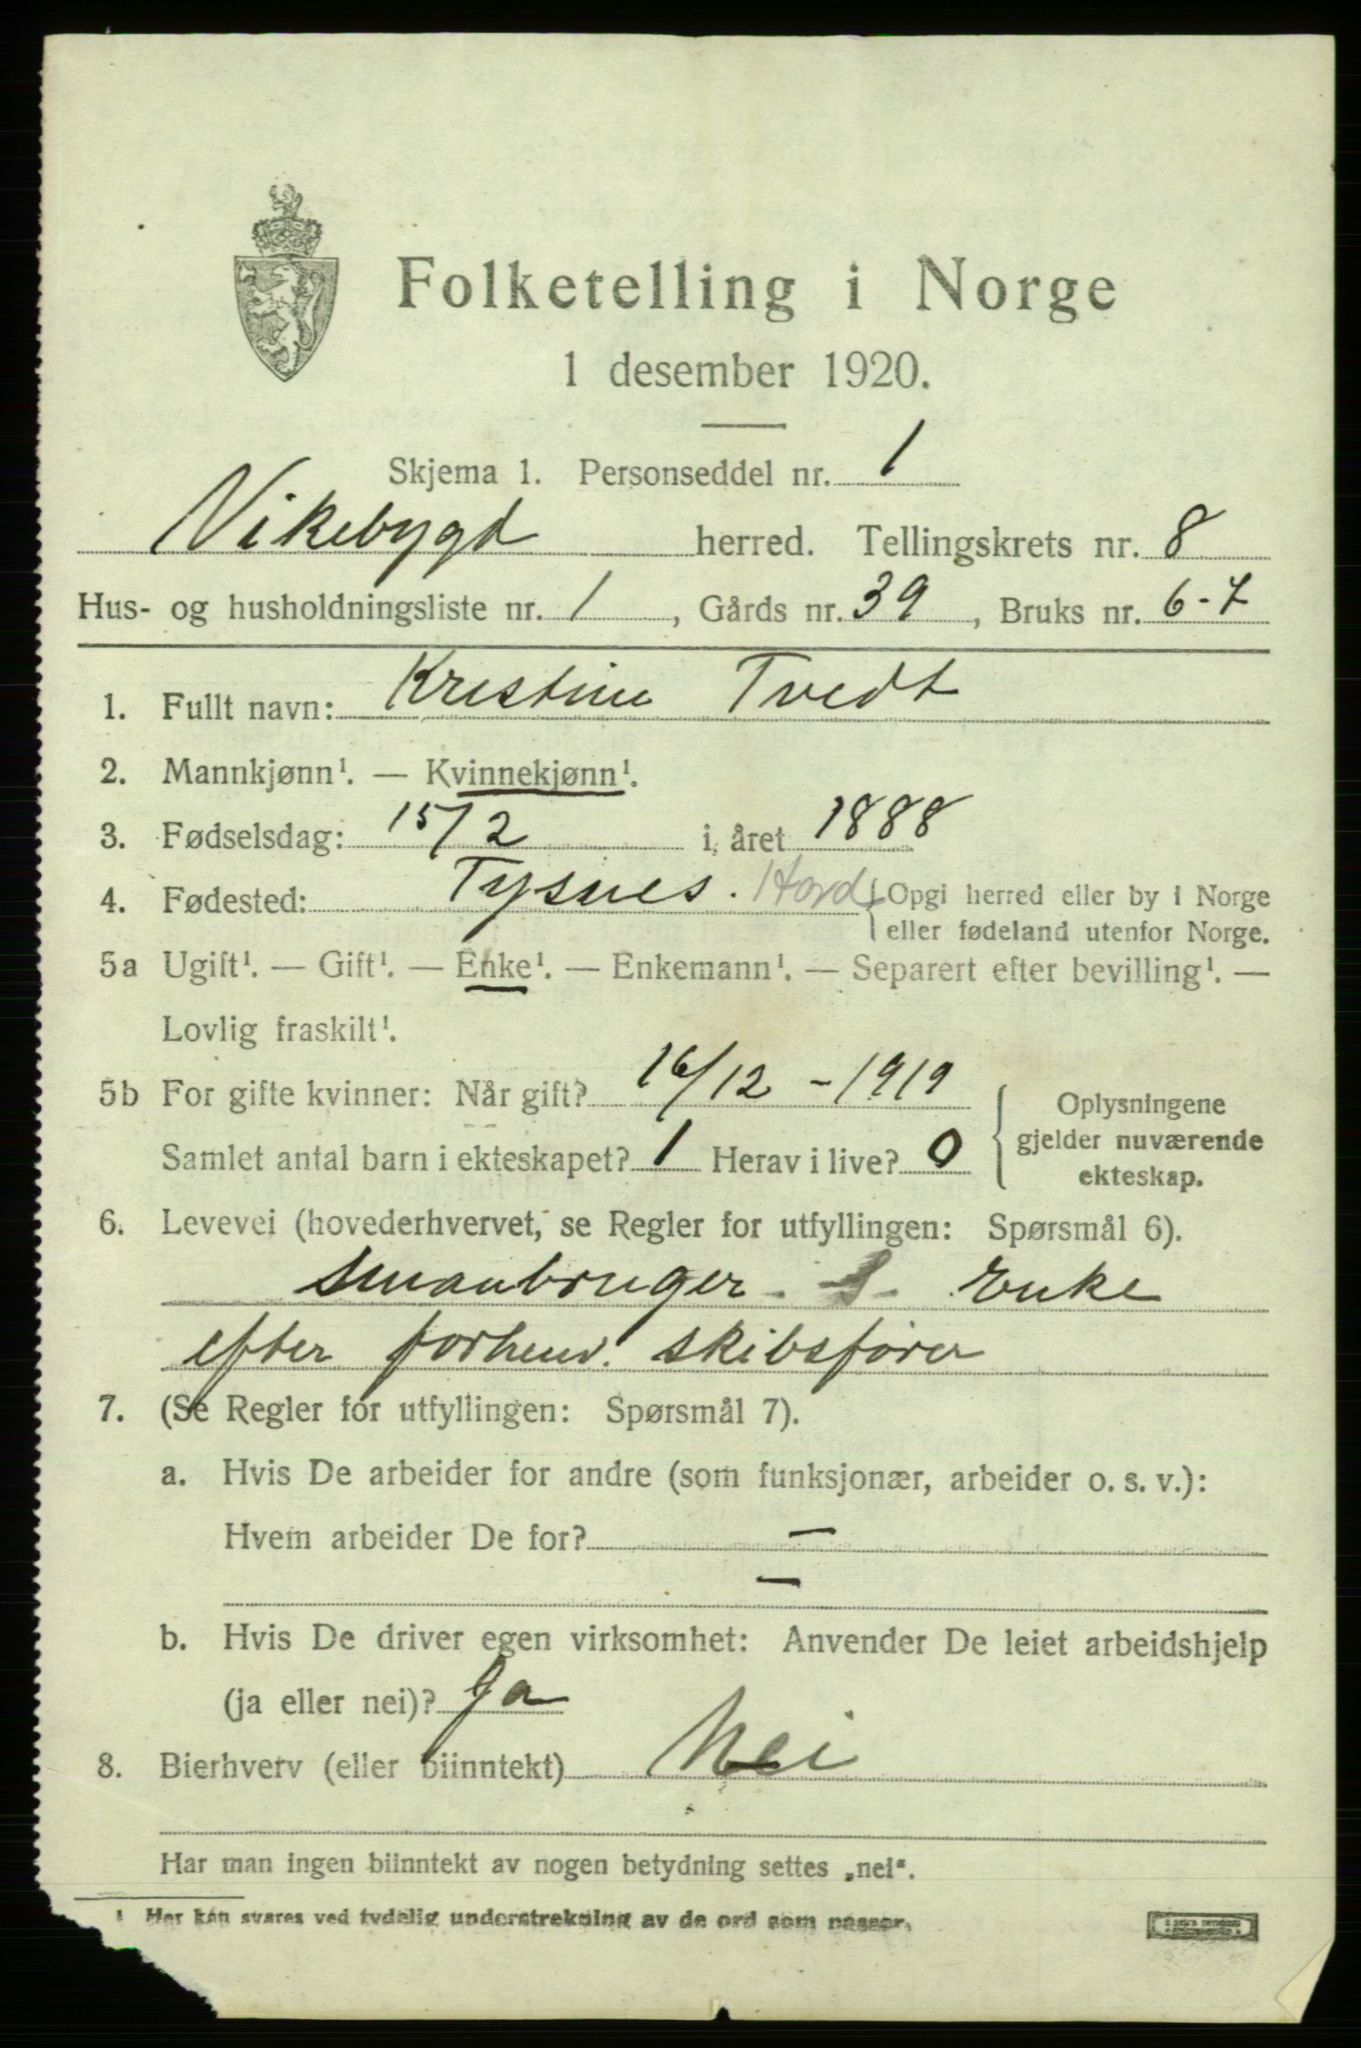 Folketelling i Norge
1 desember 1920.
Skjema 1. Personseddel nr. 1
Vikebygd herred. Tellingskrets nr. 8
Hus- og husholdningsliste nr. 1, Gårds nr. 39, Bruks nr. 6-7
1. Fullt navn: Kristine Tvedt
2. Mannkjønn¹. — Kvinnekjønn¹.
3. Fødselsdag: 15/2 i året 1888
4. Fødested: Tysnes. Hord {Opgi herred eller by i Norge
eller fødeland utenfor Norge.
5a Ugift¹. — Gift¹. — Enke¹. — Enkemann¹. — Separert efter bevilling¹. —
Lovlig fraskilt¹.
5b For gifte kvinner: Når gift? 16/12 - 1919
Samlet antal barn i ekteskapet? 1 Herav i live? 0
Oplysningene
gjelder nuværende
ekteskap.
6. Levevei (hovederhvervet, se Regler for utfyllingen: Spørsmål 6).
smaabruger. S. Enke
efter forhenv. skibsfører
7. (Se Regler for utfyllingen: Spørsmål 7).
a. Hvis De arbeider for andre (som funksjonær, arbeider o. s. v.):
Hvem arbeider De for? —
—
b. Hvis De driver egen virksomhet: Anvender De leiet arbeidshjelp
(ja eller nei)? Ja
8. Bierhverv (eller biinntekt) Nei
Har man ingen biinntekt av nogen betydning settes „nei“.
¹ Her kan svares ved tydelig understrekning av de ord som passer.